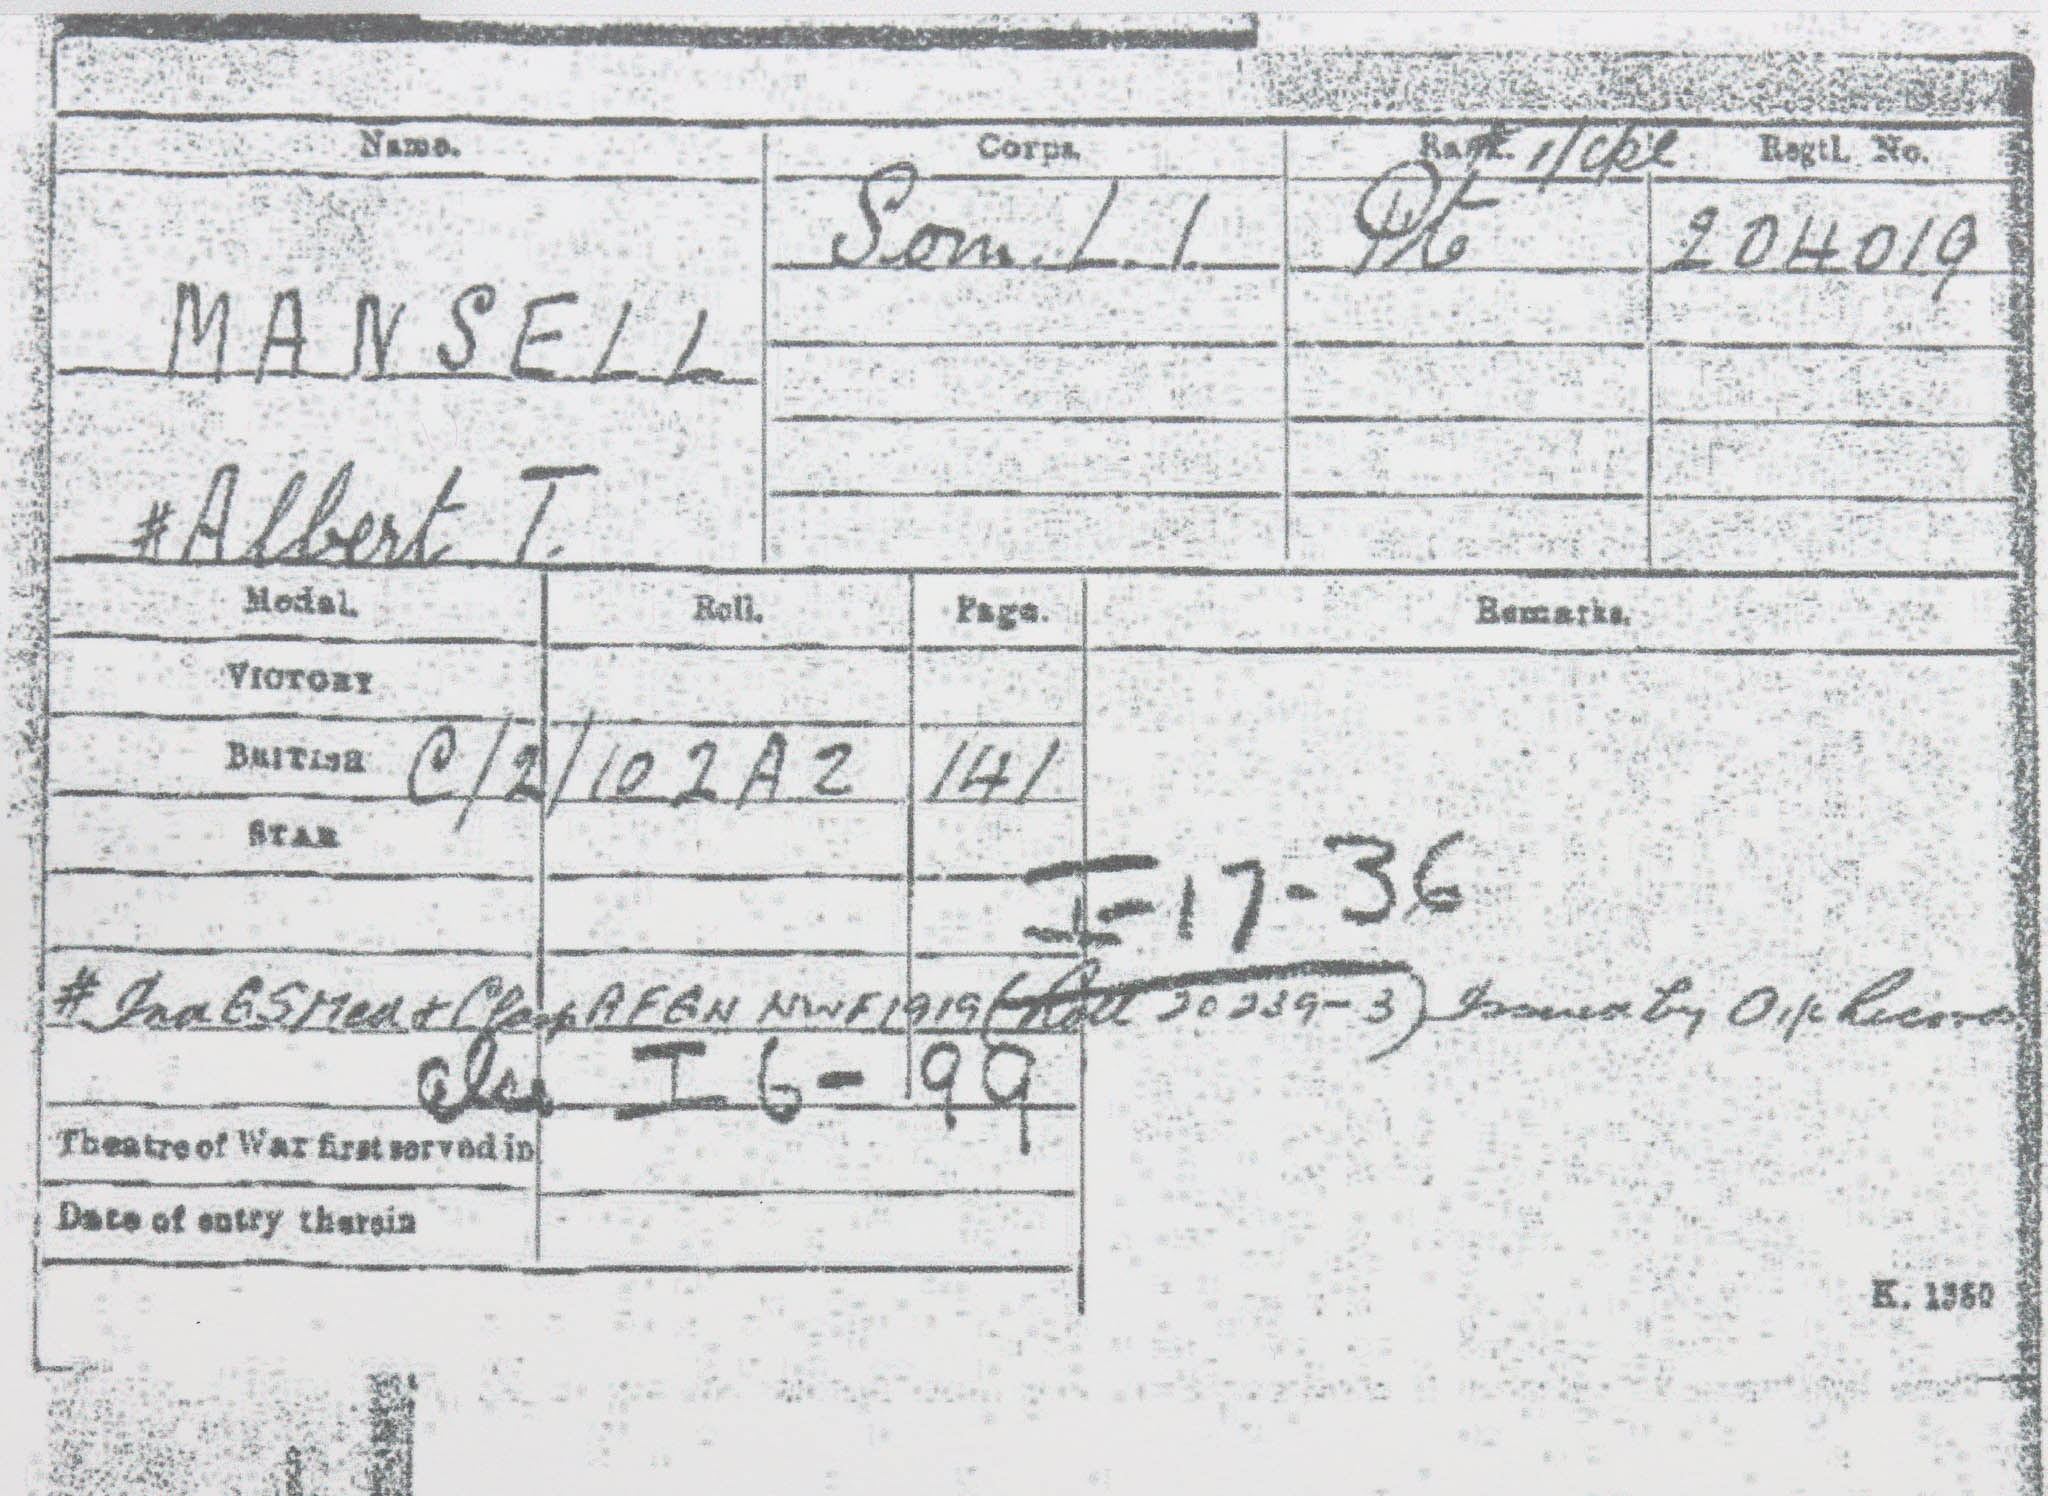 Name. Corps. Rank. # L/Cpl Regtl. No.
Som. L. I. Pte 204019
MANSELL
# Albert T.
Medal. Roll. Page. Remarks.
VICTORY
BRITISH C/2/102A2 141
STAR
I-17-36
# Ind G S Med & Clasp AFGN NWF 1919 (Roll 20239-3) Issued by O i/c Records
also I 6-99
Theatre of War first served in
Date of entry therein
K. 1380